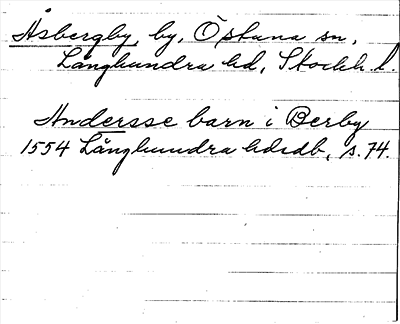 Åsbergby, by, Östuna sn,
Långhundra hd, Stockh. l.
Andersse barn i Berby
1554 Långhundra hdsdb, s. 74.